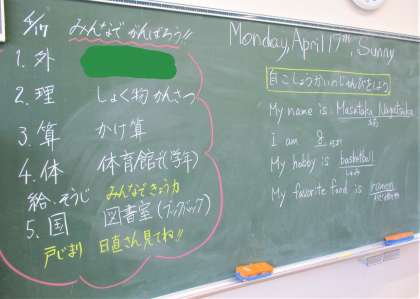 4/17 みんなで がんばろう!!
1. 外
2. 理 しょく物かんさつ
3. 算 かけ算
4. 体 体育館で(学年)
給・そうじ みんなできょう力
5. 国 図書室(ブックバック)
戸じまり 日直さん見てね!!
Monday, April 17th, Sunny
自こしょうかいのじゅんびをしよう
My name is Masataka Nagatsuka
I am
My hobby is basketball
My favorite food is ramen